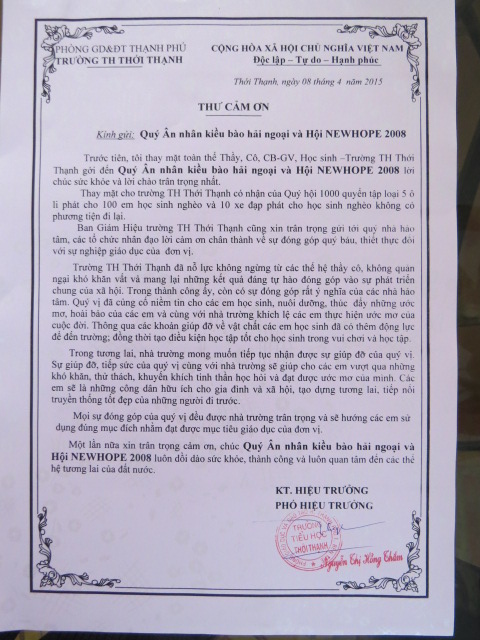 PHÒNG GD&ĐT THẠNH PHÚ
TRƯỜNG TH THỚI THẠNH
CỘNG HÒA XÃ HỘI CHỦ NGHĨA VIỆT NAM
Độc lập – Tự do – Hạnh phúc
Thới Thạnh, ngày 08 tháng 4 năm 2015
THƯ CẢM ƠN
Kính gửi: Quý Ân nhân kiều bào hải ngoại và Hội NEWHOPE 2008
Trước tiên, tôi thay mặt toàn thể Thầy, Cô, CB-GV, Học sinh –Trường TH Thới
Thạnh gởi đến Quý Ân nhân kiều bào hải ngoại và Hội NEWHOPE 2008 lời
chúc sức khỏe và lời chào trân trọng nhất.
Thay mặt cho trường TH Thới Thạnh có nhận của Quý hội 1000 quyển tập loại 5 ô
li phát cho 100 em học sinh nghèo và 10 xe đạp phát cho học sinh nghèo không có
phương tiện đi lại.
Ban Giám Hiệu trường TH Thới Thạnh cũng xin trân trọng gửi tới quý nhà hảo
tâm, các tổ chức nhân đạo lời cảm ơn chân thành về sự đóng góp quý báu, thiết thực đối
với sự nghiệp giáo dục của đơn vị.
Trường TH Thới Thạnh đã nỗ lực không ngừng từ các thế hệ thầy cô, không quản
ngại khó khăn vất và mang lại những kết quả đáng tự hào đóng góp vào sự phát triển
chung của xã hội. Trong thành công ấy, còn có sự đóng góp rất ý nghĩa của các nhà hảo
tâm. Quý vị đã củng cố niềm tin cho các em học sinh, nuôi dưỡng, thúc đẩy những ước
mơ, hoài bão của các em và cùng với nhà trường khích lệ các em thực hiện ước mơ của
cuộc đời. Thông qua các khoản giúp đỡ về vật chất các em học sinh đã có thêm động lực
để đến trường; đồng thời tạo điều kiện học tập tốt cho học sinh trong vui chơi và học tập.
Trong tương lai, nhà trường mong muốn tiếp tục nhận được sự giúp đỡ của quý vị.
Sự giúp đỡ, tiếp sức của quý vị cùng với nhà trường sẽ giúp cho các em vượt qua những
khó khăn, thử thách, khuyến khích tinh thần học hỏi và đạt được ước mơ của mình. Các
em sẽ là những công dân hữu ích cho gia đình và xã hội, tạo dựng tương lai, tiếp nối
truyền thống tốt đẹp của những người đi trước.
Mọi sự đóng góp của quý vị đều được nhà trường trân trọng và sẽ hướng các em sử
dụng đúng mục đích nhằm đạt được mục tiêu giáo dục của đơn vị.
Một lần nữa xin trân trọng cảm ơn, chúc Quý Ân nhân kiều bào hải ngoại và
Hội NEWHOPE 2008 luôn dồi dào sức khỏe, thành công và luôn quan tâm đến các thế
hệ tương lai của đất nước.
KT. HIỆU TRƯỞNG
PHÓ HIỆU TRƯỞNG
TRƯỜNG
TIỂU HỌC
THỚI THẠNH
Nguyễn Thị Hồng Thắm